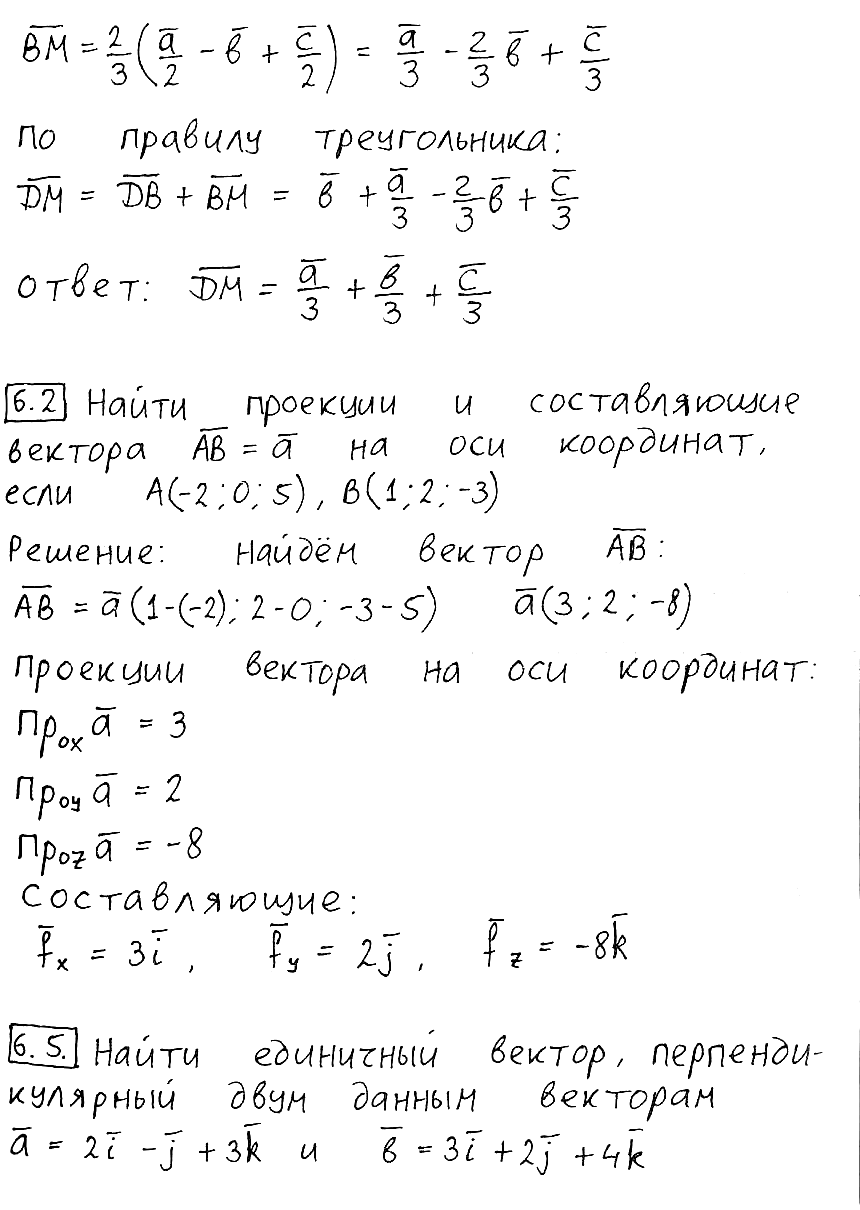 B̅M̅ = 2/3(a̅/2 - в̅ + c̅/2) = a̅/3 - 2/3 в̅ + c̅/3
По правилу треугольника:
D̅M̅ = D̅B̅ + B̅M̅ = в̅ + a̅/3 - 2/3 в̅ + c̅/3
Ответ: D̅M̅ = a̅/3 + в̅/3 + c̅/3
6.2 Найти проекции и составляющие
вектора A̅B̅ = a̅ на оси координат,
если A(-2; 0; 5), B(1; 2; -3)
Решение: Найдём вектор A̅B̅:
A̅B̅ = a̅(1-(-2); 2-0; -3-5) a̅(3; 2; -8)
Проекции вектора на оси координат:
Пр_ox a̅ = 3
Пр_oy a̅ = 2
Пр_oz a̅ = -8
Составляющие:
f̅_x = 3i̅, f̅_y = 2j̅, f̅_z = -8k̅
6.5. Найти единичный вектор, перпенди-
кулярный двум данным векторам
a̅ = 2i̅ - j̅ + 3k̅ и в̅ = 3i̅ + 2j̅ + 4k̅